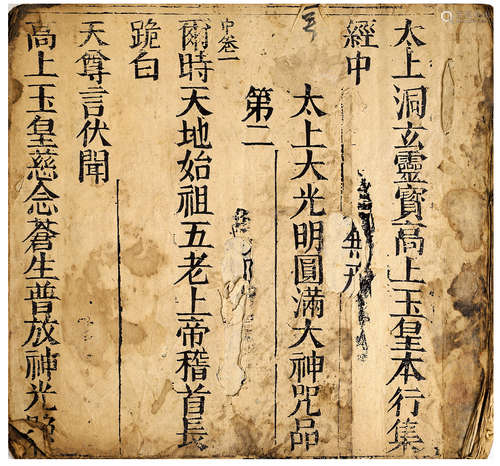 太上洞玄靈寳高上玉皇本行集
經中
太上大光明圓滿大神咒品
第二
中卷一
爾時天地始祖五老上帝稽首長
跪白
天尊言伏聞
高上玉皇慈念蒼生普放神光